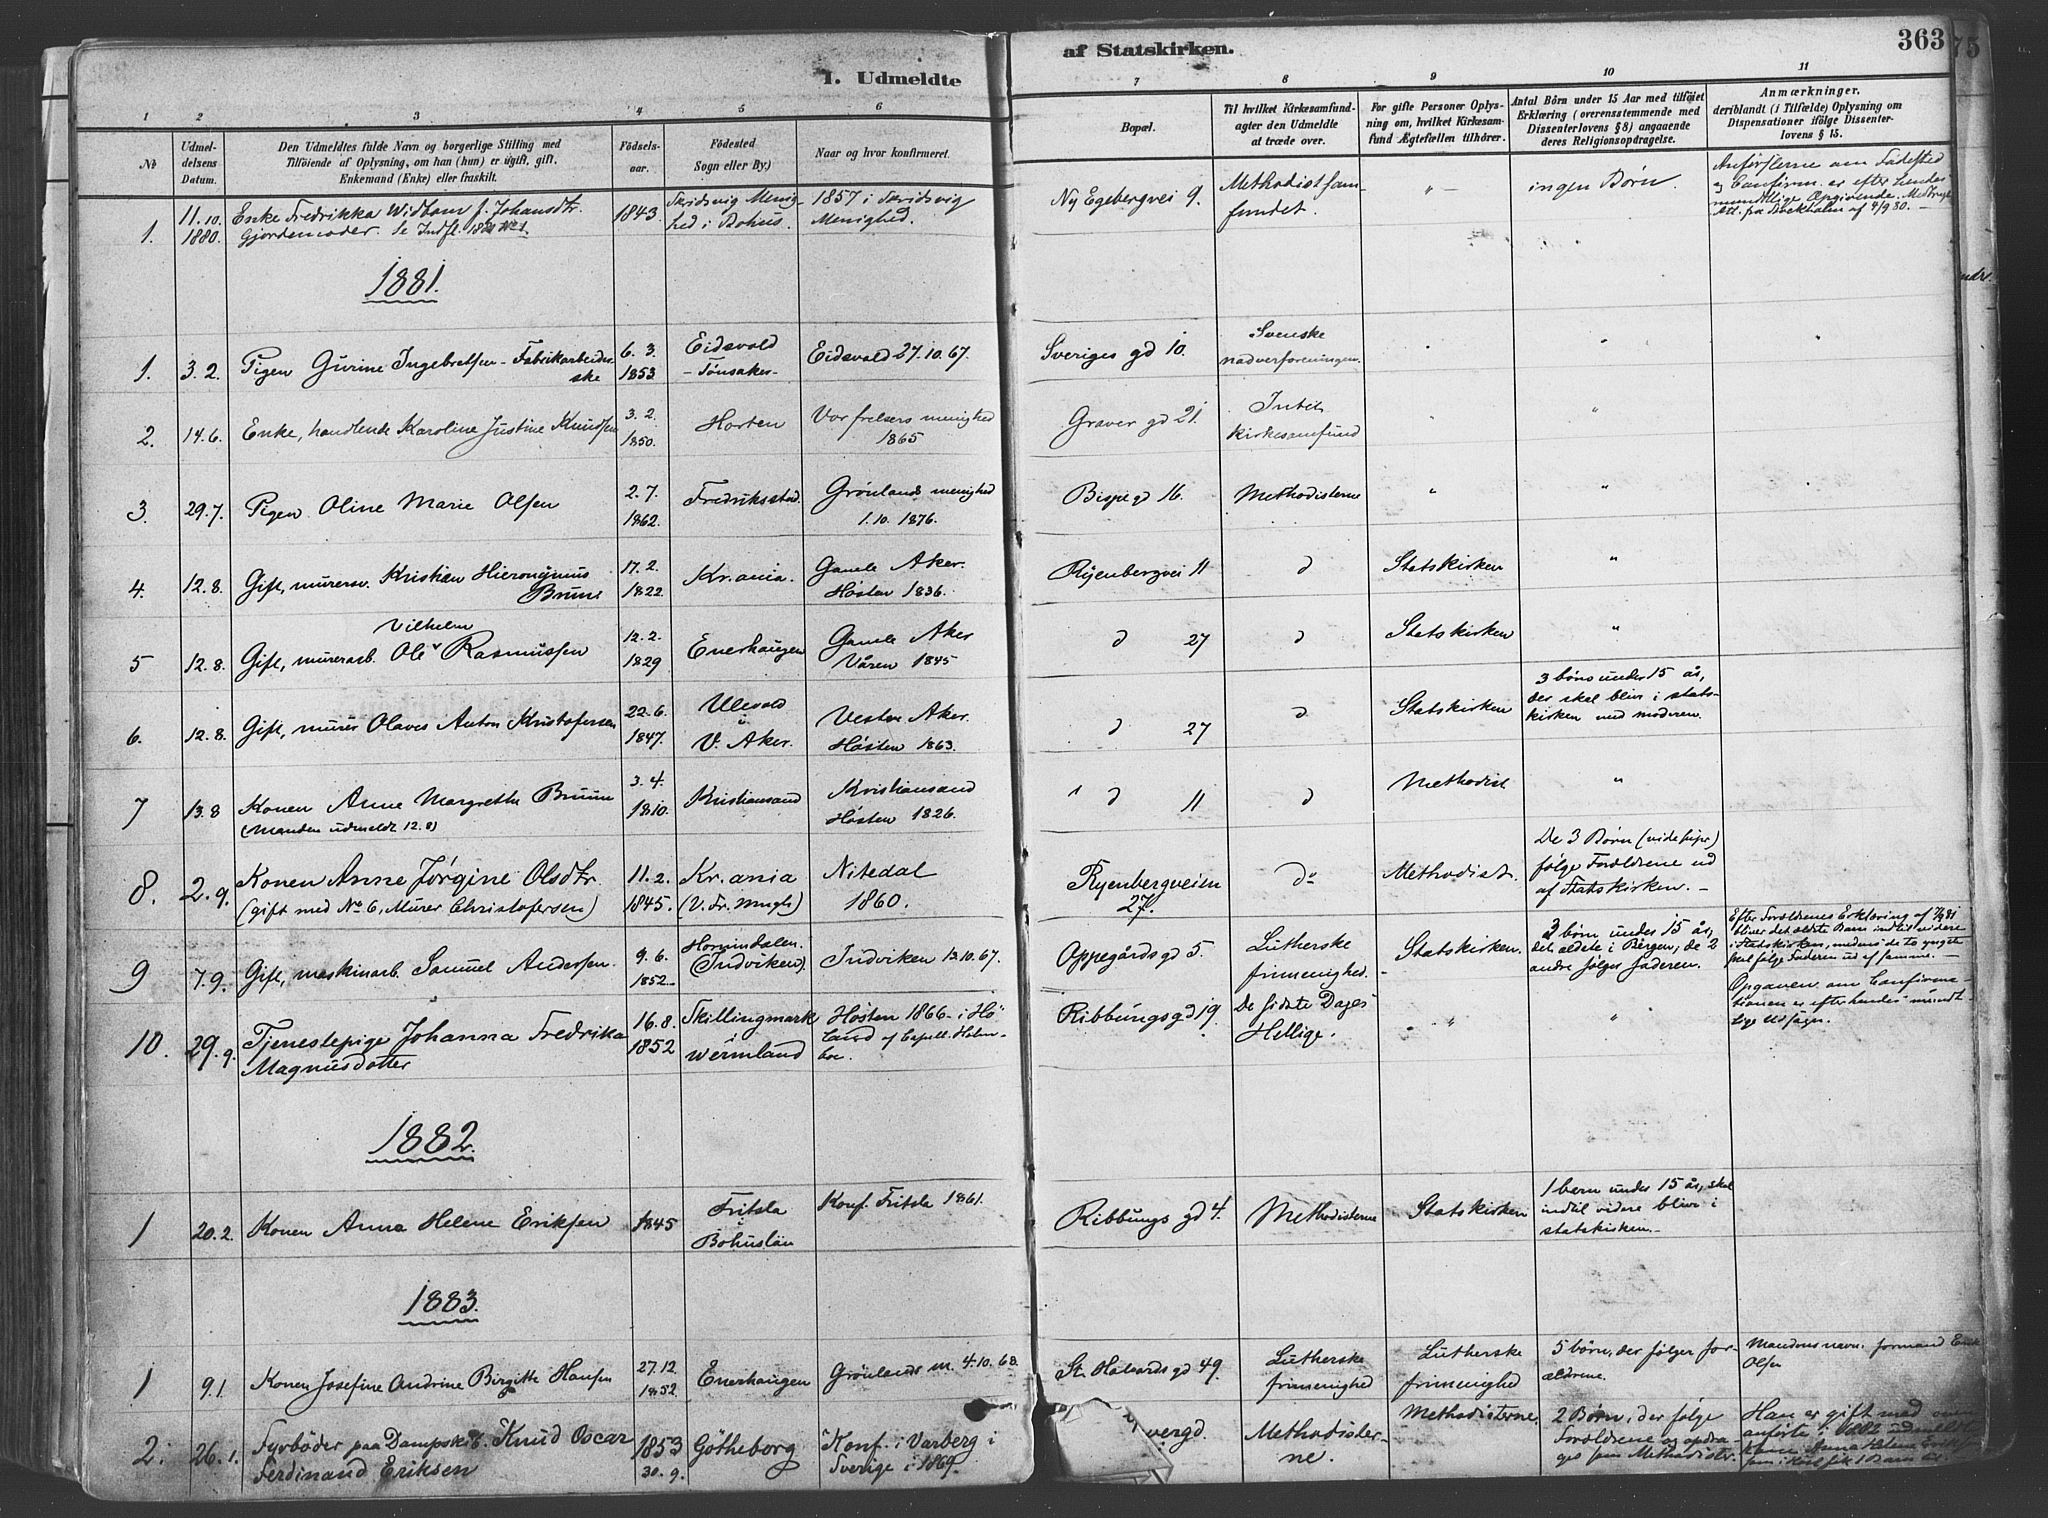 I. Udmeldte
af Statskirken.
363
75
1 2 3 4 5 6 7 8 9 10 11
No
Udmel-
delsens
Datum.
Den Udmeldtes fulde Navn og borgerlige Stilling med
Tilföiende af Oplysning, om han (hun) er ugift, gift.
Enkemand (Enke) eller fraskilt.
Födsels-
aar.
Födested
Sogn eller By.)
Naar og hvor konfirmeret.
Bopæl.
Til hvilket Kirkesamfund-
agter den Udmeldte
at træde over.
For gifte Personer Oplys-
ning om, hvilket Kirkesam-
fund Ægtefællen tilhörer.
Antal Börn under 15 Aar med tilföiet
Erklæring (overensstemmende med
Dissenterlovens § 8) angaaende
deres Religionsopdragelse.
Anmærkninger,
deriblandt (i Tilfælde) Oplysning om
Dispensationer ifölge Dissenter-
lovens § 15.
1. 11.10.
1880.
Enke Fredrikka Widbom f. Johansdtr.
Gjordemoder. Se Indfl.
1843.
Skridsvig Menig-
hed i Bohus.
1857 i Skridsvig
Menighed.
Ny Egebergvei 9.
Methodistsam-
fundet.
" —
ingen Børn.
Anførslerne om Fødested
og Confirm. er efter hendes
mundtlige Opgivende. Medbragt
Att. fra Stockholm af 4/9 80. —
1881.
1. 3.2.
Pigen Gurine Ingebretsen - Fabrikarbeider-
ske
6.3.
1853.
Eidsvold
- Tönsaker -
Eidsvold 27.10.67.
Sveriges gd 10.
Svenske
nadverforeningen.
2. 14.6.
Enke, handlende Karoline Justine Knudsen
3.2.
1850.
Horten
Vor frelsers menighed
1865
Graver gd 21.
kirkesamfund
3. 29.7.
Pigen Oline Marie Olsen
2.7.
1862.
Fredriksstad.
Grönlands menighed
1.10.1876.
Bispegd 16.
Methodisterne
4. 12.8.
Gift, murersv. Kristian Hieronymus
Bruun
17.2.
1822.
Kr.ania.
Gamle Aker.
Høsten 1836.
Ryenbergvei 11
d
Statskirken
"
5 12.8.
Vilhelm
Gift, murerarb. Ole Rasmussen
12.2.
1829
Enerhaugen
Gamle Aker
Våren 1845
d 27
d
Statskirken
"
6. 12.8.
Gift, murer Olaves Anton Kristofersen
22.6.
1847.
Ulevold
V. Aker.
Vestre Aker.
Høsten 1863.
d 27
d
Statskirken
3 børn under 15 år,
der skal blive i stats-
kirken med moderen.
7 13.8
Konen Anne Margrethe Bruun
(Manden udmeldt 12.8)
3.4.
1810.
Kristiansand
Kristiansand
Høsten 1826.
d 11
d
Methodist
"
8. 2.9.
Konen Anne Jørgine Olsdtr.
(gift med No 6, Murer Christofersen)
11.2.
1845.
Kr.ania
(V. Fr. Mngh)
Nitedal
1860.
Ryenbergveien
27.
do
Methodist.
De 3 Børn (vide supr)
følge Forældrene ud
af Statskirken. —
9 7.9.
Gift, maskinarb. Samuel Andersen
9.6.
1852.
Hornindalen.
(Indviken).
Indviken 13.10.67.
Oppegårds gd 5.
Lutherske
frimenighed.
Statskirken.
3 børn under 15 år,
det ældste i Bergen, de 2
andre følger faderen.
Efter Forældrenes Erklæring af 7/9 81
bliver det ældste Barn indtil videre
i Statskirken, medens de to yngste
skal følge Faderen ud af samme. —
10. 29.9.
Tjenestepige Johanna Fredrika
Magnusdotter
16.8.
1852
Skillingmark
Wermland
Høsten 1866 - i Hö-
land af Capell. Holm-
boe.
Ribbungs gd 19.
De sidste Dages
Hellige.
"
"
Opgaven om Confirma-
tionen er efter hendes mundt-
lige Udsagn.
1882.
1 20.2.
Konen Anna Helene Eriksen
1845
Fritsla
Bohuslän
Konf. Fritsla 1861.
Ribbungs gd 4.
Methodisterne
Statskirken
1 barn under 15 år, skal
indtil videre blive i
statskirken. —
1883.
1 9.1.
Konen Josefine Andrine Birgitte Hansen
27.12
1852.
Enerhaugen
Grönlands m. 4.10.68.
St. Halvards gd 49.
Lutherske
frimenighed
Lutherske
frimenighed
5 børn, der følger for-
ældrene.
Mandens navn: formand Erik
Olsen
2. 26.1.
Fyrbøder paa Dampsk. Knud Oscar
Ferdinand Eriksen
1853
30.9.
Götheborg
Konf. i Varberg i
Sverige i 1869.
Methodister-
ne.
Methodisterne
2 Børn, der følge
Forældrene og opdra-
ges som Methodister.
Han er gift med
anførte i 1882 udmeldte
Kone Anna Helene Eriksen